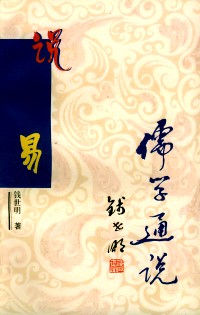 说易
钱世明 著
儒学通说
钱世明